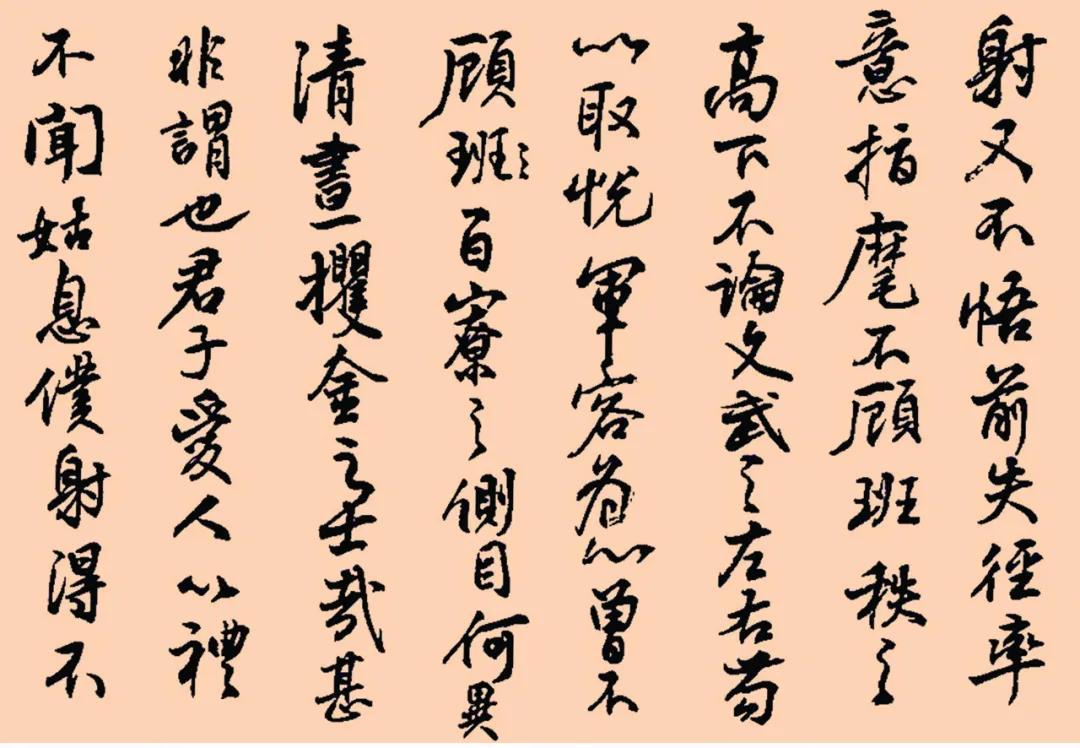 射又不悟前失徑率
意指麾不顧班秩之
高下不論文武之左右苟
以取悅軍容為心曾不
顧班班百寮之側目何異
清晝攫金之士哉甚
非謂也君子愛人以禮
不聞姑息僕射得不